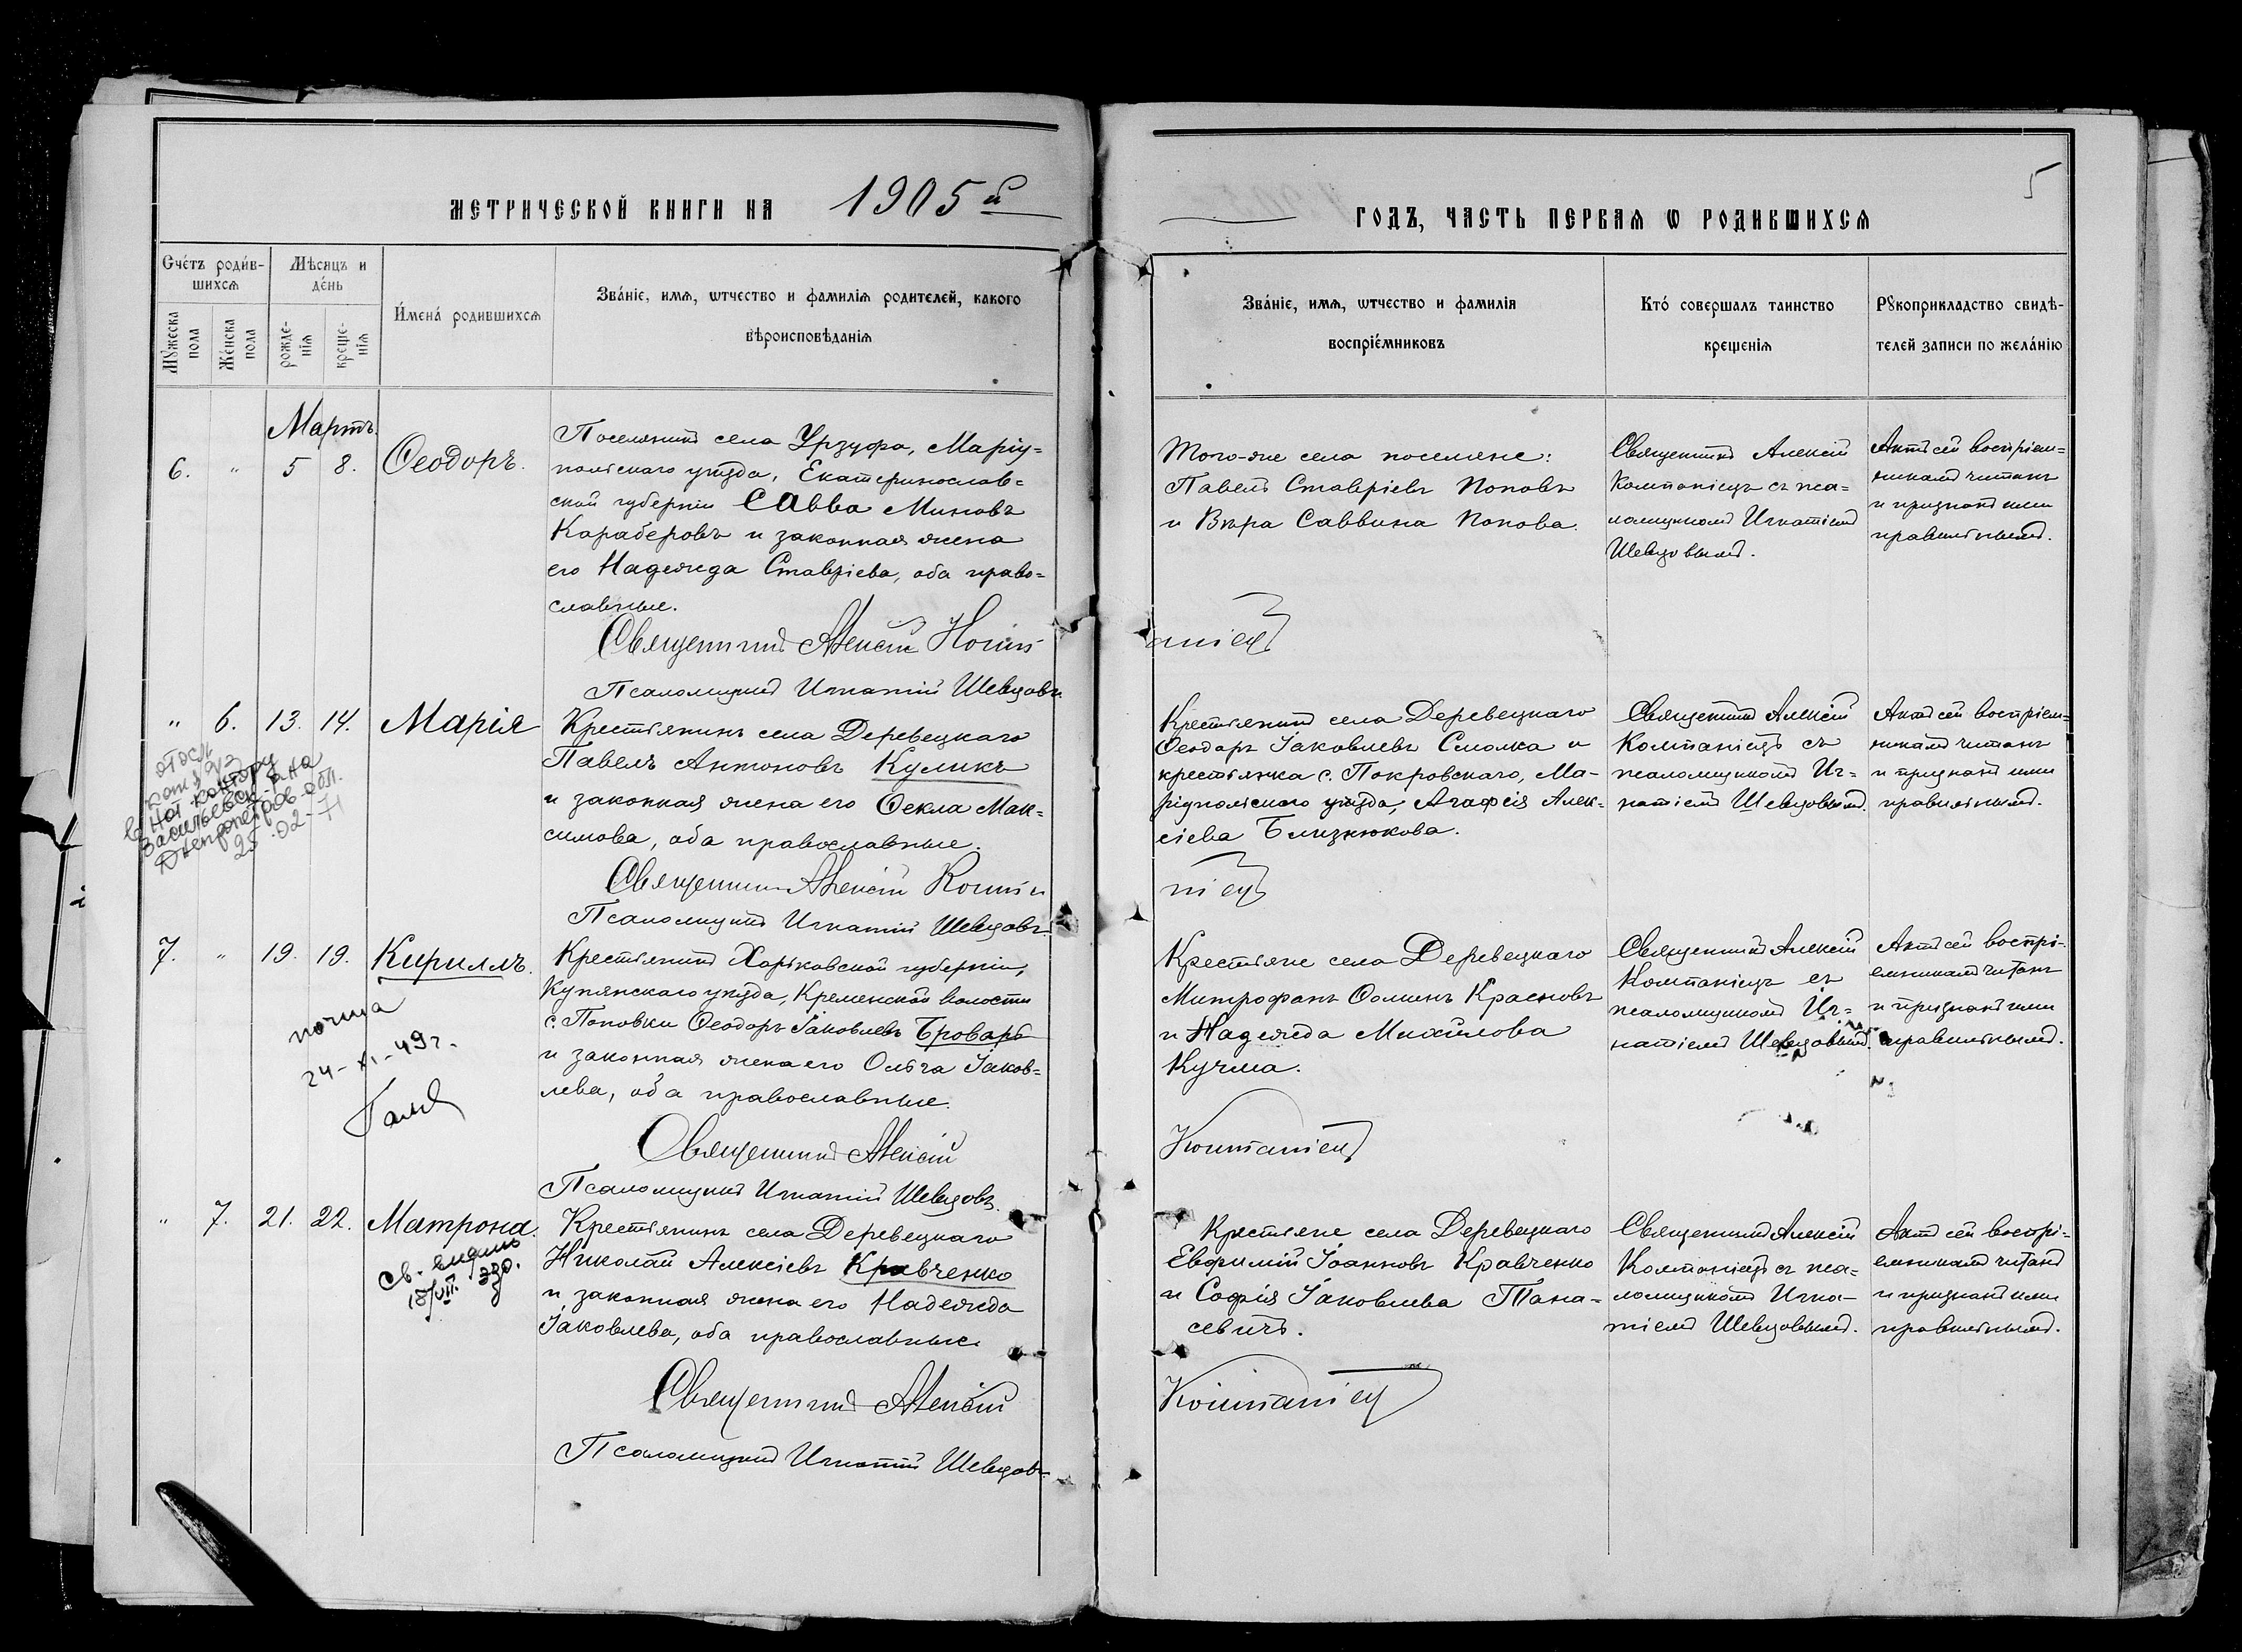 МЕТРИЧЕСКОЙ КНИГИ НА 1905й
ГОДЪ, ЧАСТЬ ПЕРВАѦ Ѡ РОДИВШИХСѦ
5
Счётъ роди́в-
шихсѧ
Мѣсѧцъ и
де́нь
Мꙋжеска
пола
Же́нска
пола
рожде-
нїѧ
креще-
нїѧ
И́мена́ родившихсѧ
Зва́нїе, имѧ, ѿчество и фамилїѧ родителей, какого
вѣроисповѣданїѧ
Зва́нїе, имѧ, ѿчество и фамилїѧ
воспрїе́мниковъ
Кто́ совершалъ таинство
крещенїѧ
Рꙋкоприкладство свидѣ-
телей записи по жела́нїю
Мартъ.
6. " 5 8. Ѳеодоръ.
Поселянинъ села Урзуфа, Маріу=
польскаго уѣзда, Екатеринослав=
ской губерніи Савва Миновъ
Караберовъ и законная жена
его Надежда Ставріева, оба право=
славные.
Священникъ Алексій
Псаломщикъ Игнатій Шевцовъ.
Того-же села поселяне:
Павелъ Ставріевъ Поповъ
и Вѣра Саввина Попова.
Священникъ Алексій
Компаніецъ съ пса=
ломщикомъ Игнатіемъ
Шевцовымъ.
Актъ сей воспріем=
никамъ читанъ
и признанъ ими
правильнымъ.
" 6. 13. 14. Марія
Крестьянинъ села Деревецкаго
Павелъ Антоновъ Куликъ
и законная жена его Ѳекла Мак=
симова, оба православные.
Священникъ Алексій
Псаломщикъ Игнатій Шевцовъ.
Крестьянинъ села Деревецкаго
Ѳеодоръ Іаковлевъ Смолка и
крестьянка с. Покровскаго, Ма-
ріупольскаго уѣзда, Агафія Алек=
сіева Близнюкова.
Священникъ Алексій
Компаніецъ съ
псаломщикомъ Иг=
натіемъ Шевцовымъ.
Актъ сей воспріем=
никамъ читанъ
и признанъ ими
правильнымъ.
контору
Васильевск. р-на
Днепропетров. обл.
25.02-71
7. " 19. 19. Кириллъ.
почта
24-XI-49г.
Крестьянинъ Харьковской губерніи,
Купянскаго уѣзда, Кременской волости
с. Поповки Ѳеодоръ Іаковлевъ Броварь
и законная жена его Ольга Іаков=
лева, оба православные.
Священникъ Алексій
Псаломщикъ Игнатій Шевцовъ.
Крестьяне села Деревецкаго
Митрофанъ Ѳоминъ Красновъ
и Надежда Михайлова
Кучма.
Компаніецъ
Священникъ Алексій
Компаніецъ съ
псаломщикомъ Иг=
натіемъ Шевцовымъ.
Актъ сей воспрі-
емникамъ читанъ
и признанъ ими
правильнымъ.
" 7. 21. 22. Матрона.
18/VII. 39г.
Крестьянинъ села Деревецкаго
Николай Алексіевъ Кравченко
и законная жена его Надежда
Іаковлева, оба православные.
Священникъ Алексій
Псаломщикъ Игнатій Шевцовъ.
Крестьяне села Деревецкаго
Евфимій Іоанновъ Кравченко
и Софія Іаковлева Тана=
севичъ.
Компаніецъ
Священникъ Алексій
Компаніецъ съ пса=
ломщикомъ Игна-
тіемъ Шевцовымъ.
Актъ сей воспрі-
емникамъ читанъ
и признанъ ими
правильнымъ.